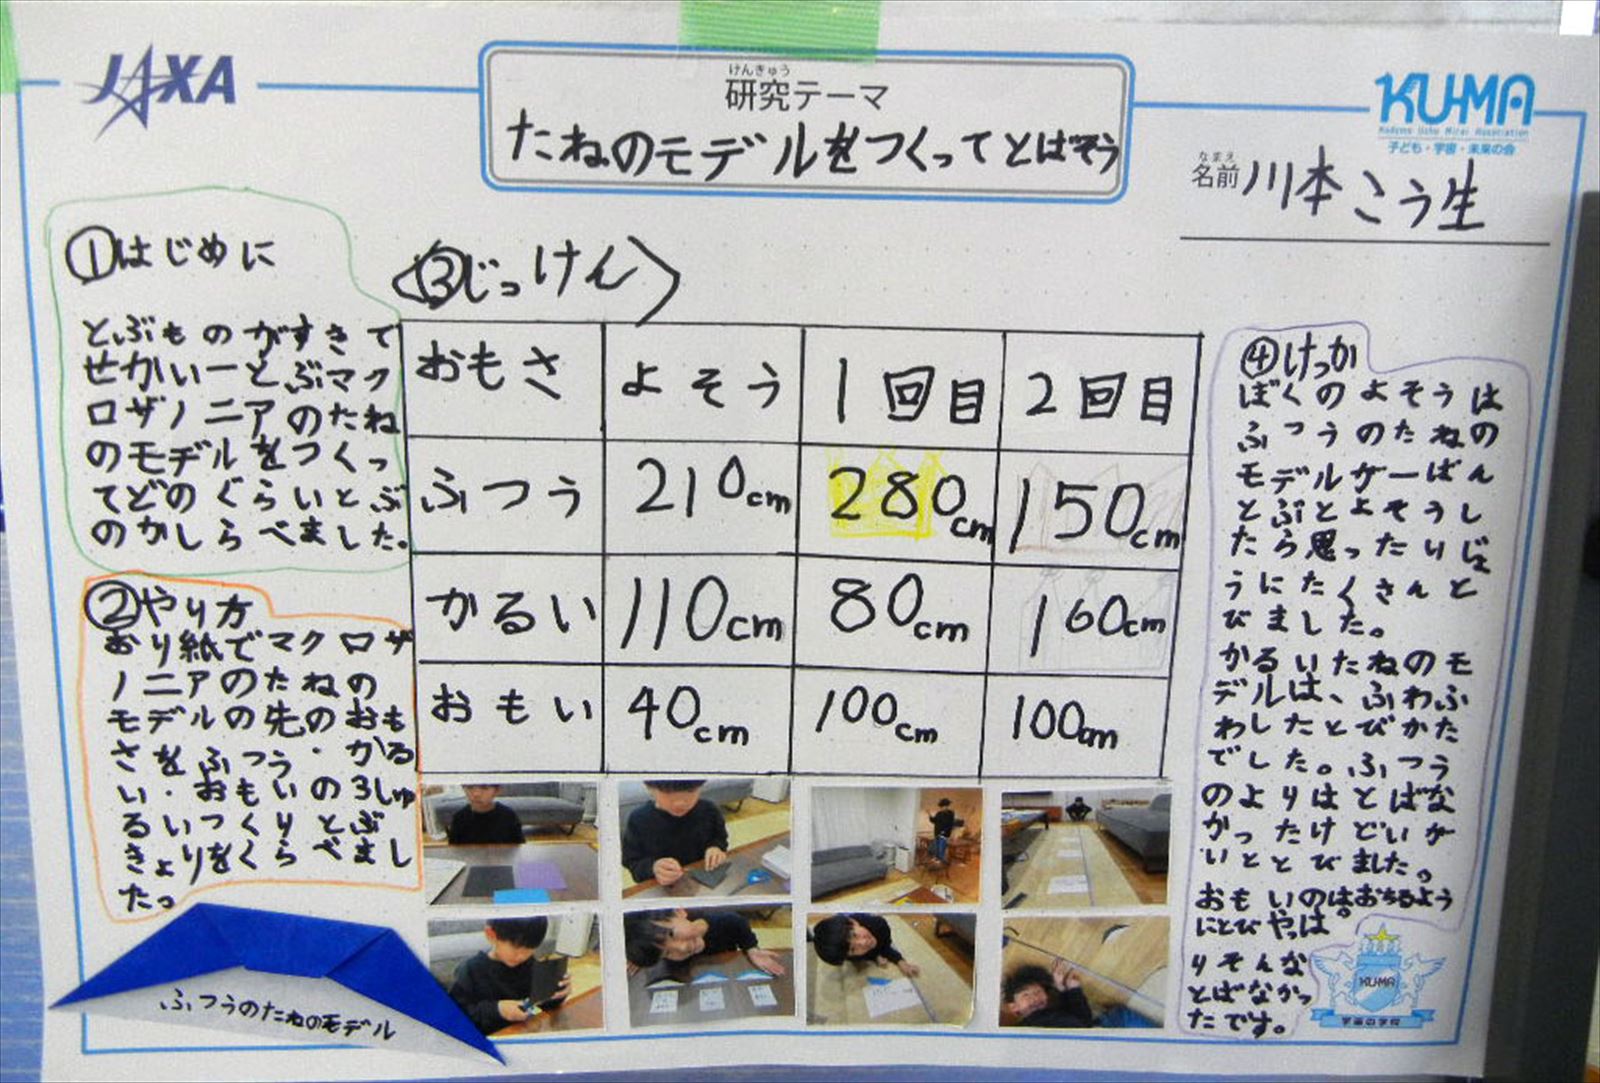 JAXA
けんきゅう
研究テーマ
たねのモデルをつくってとばそう
KU-MA
Kodomo Uchu Mirai Association
子ども・宇宙・未来の会
なまえ
名前 川本こう生
①はじめに
とぶものがすきで
せかいーとぶマク
ロザノニアのたね
のモデルをつくっ
てどのぐらいとぶ
のかしらべました。
②やり方
おり紙でマクロザ
ノニアのたねの
モデルの先のおも
さをふつう・かる
い・おもいの3しゅ
るいつくりとぶ
きょりをくらべまし
た。
ふつうのたねのモデル
〈③じっけん〉
おもさ よそう 1回目 2回目
ふつう 210cm 280cm 150cm
かるい 110cm 80cm 160cm
おもい 40cm 100cm 100cm
④けっか
ぼくのよそうは
ふつうのたねの
モデルがーばん
とぶとよそうし
たら思ったりじょ
うにたくさんと
びました。
かるいたねのモ
デルは、ふわふ
わしたとびかた
でした。ふつう
のよりはとばな
かったけどいが
いととびました。
おもいのはおちるよう
にとびやっぱ
りそんな
とばなかっ
たです。
KU-MA
宇宙の学校